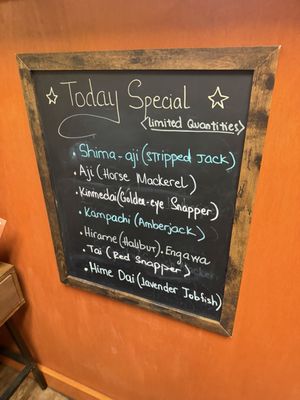 Today Special
<limited Quantities>
• Shima-aji (Stripped Jack)
• Aji (Horse Mackerel)
• Kinmedai (Golden-eye Snapper)
• Kampachi (Amberjack)
• Hirame (Halibut). Engawa
• Tai (Red Snapper)
• Hime Dai (lavender Jobfish)